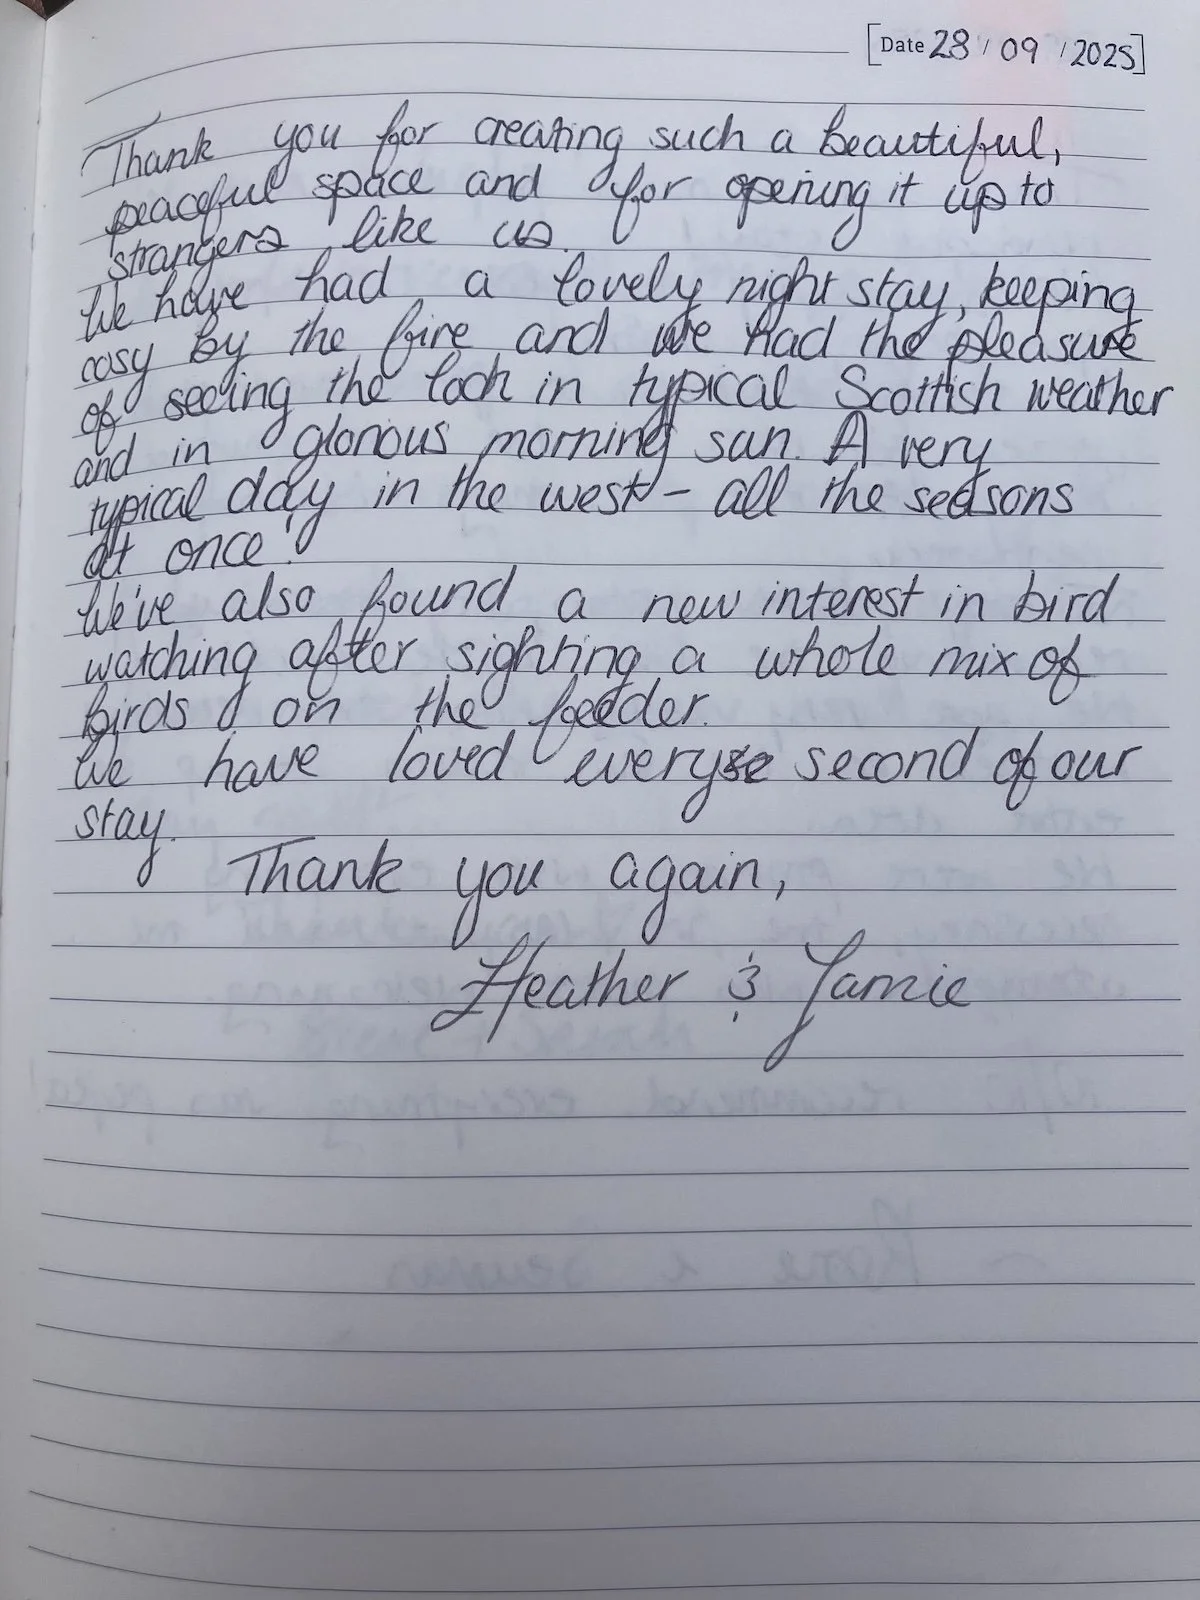 [Date 28 / 09 / 2025]
Thank you for creating such a beautiful,
peaceful space and for opening it up to
strangers like us.
We have had a lovely night stay, keeping
cosy by the fire and we had the pleasure
of seeing the loch in typical Scottish weather
and in glorious morning sun. A very
typical day in the west - all the seasons
at once!
We've also found a new interest in bird
watching after sighting a whole mix of
birds on the feeder.
We have loved every second of our
stay.
Thank you again,
Heather & Jamie